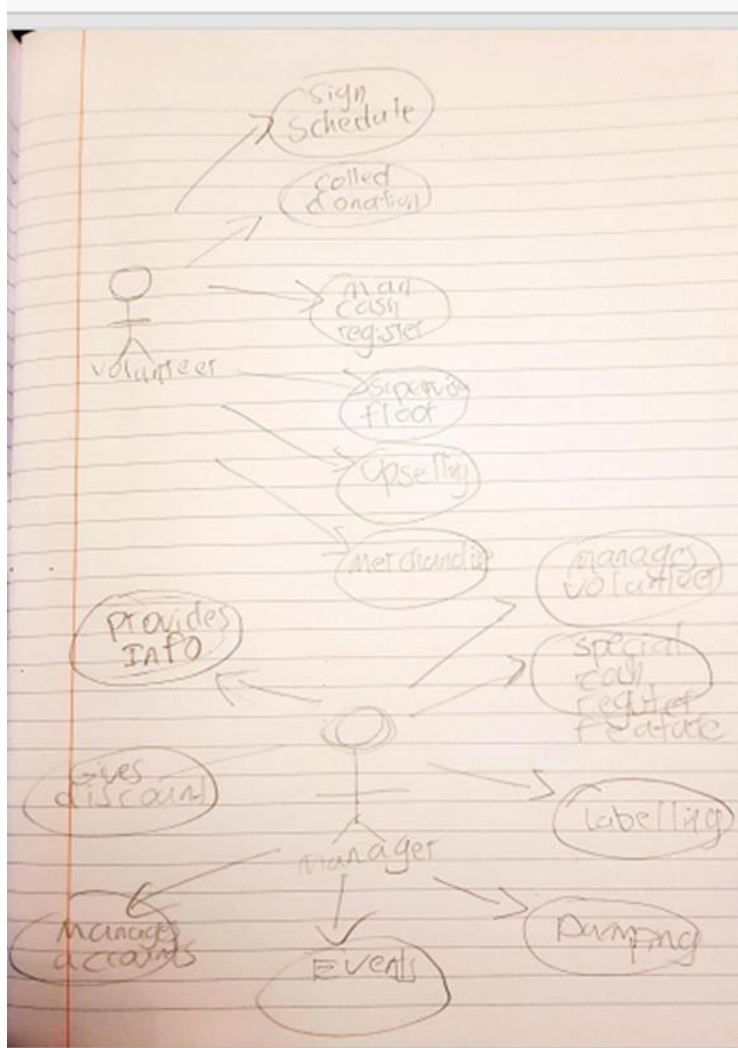 sign
schedule
colled
donation
man
cash
register
volunteer
floor
upselling
merchandise
manages
volunteer
provides
INFO
special
cash
register
feature
Gives
discount
labelling
manager
manages
accounts
Events